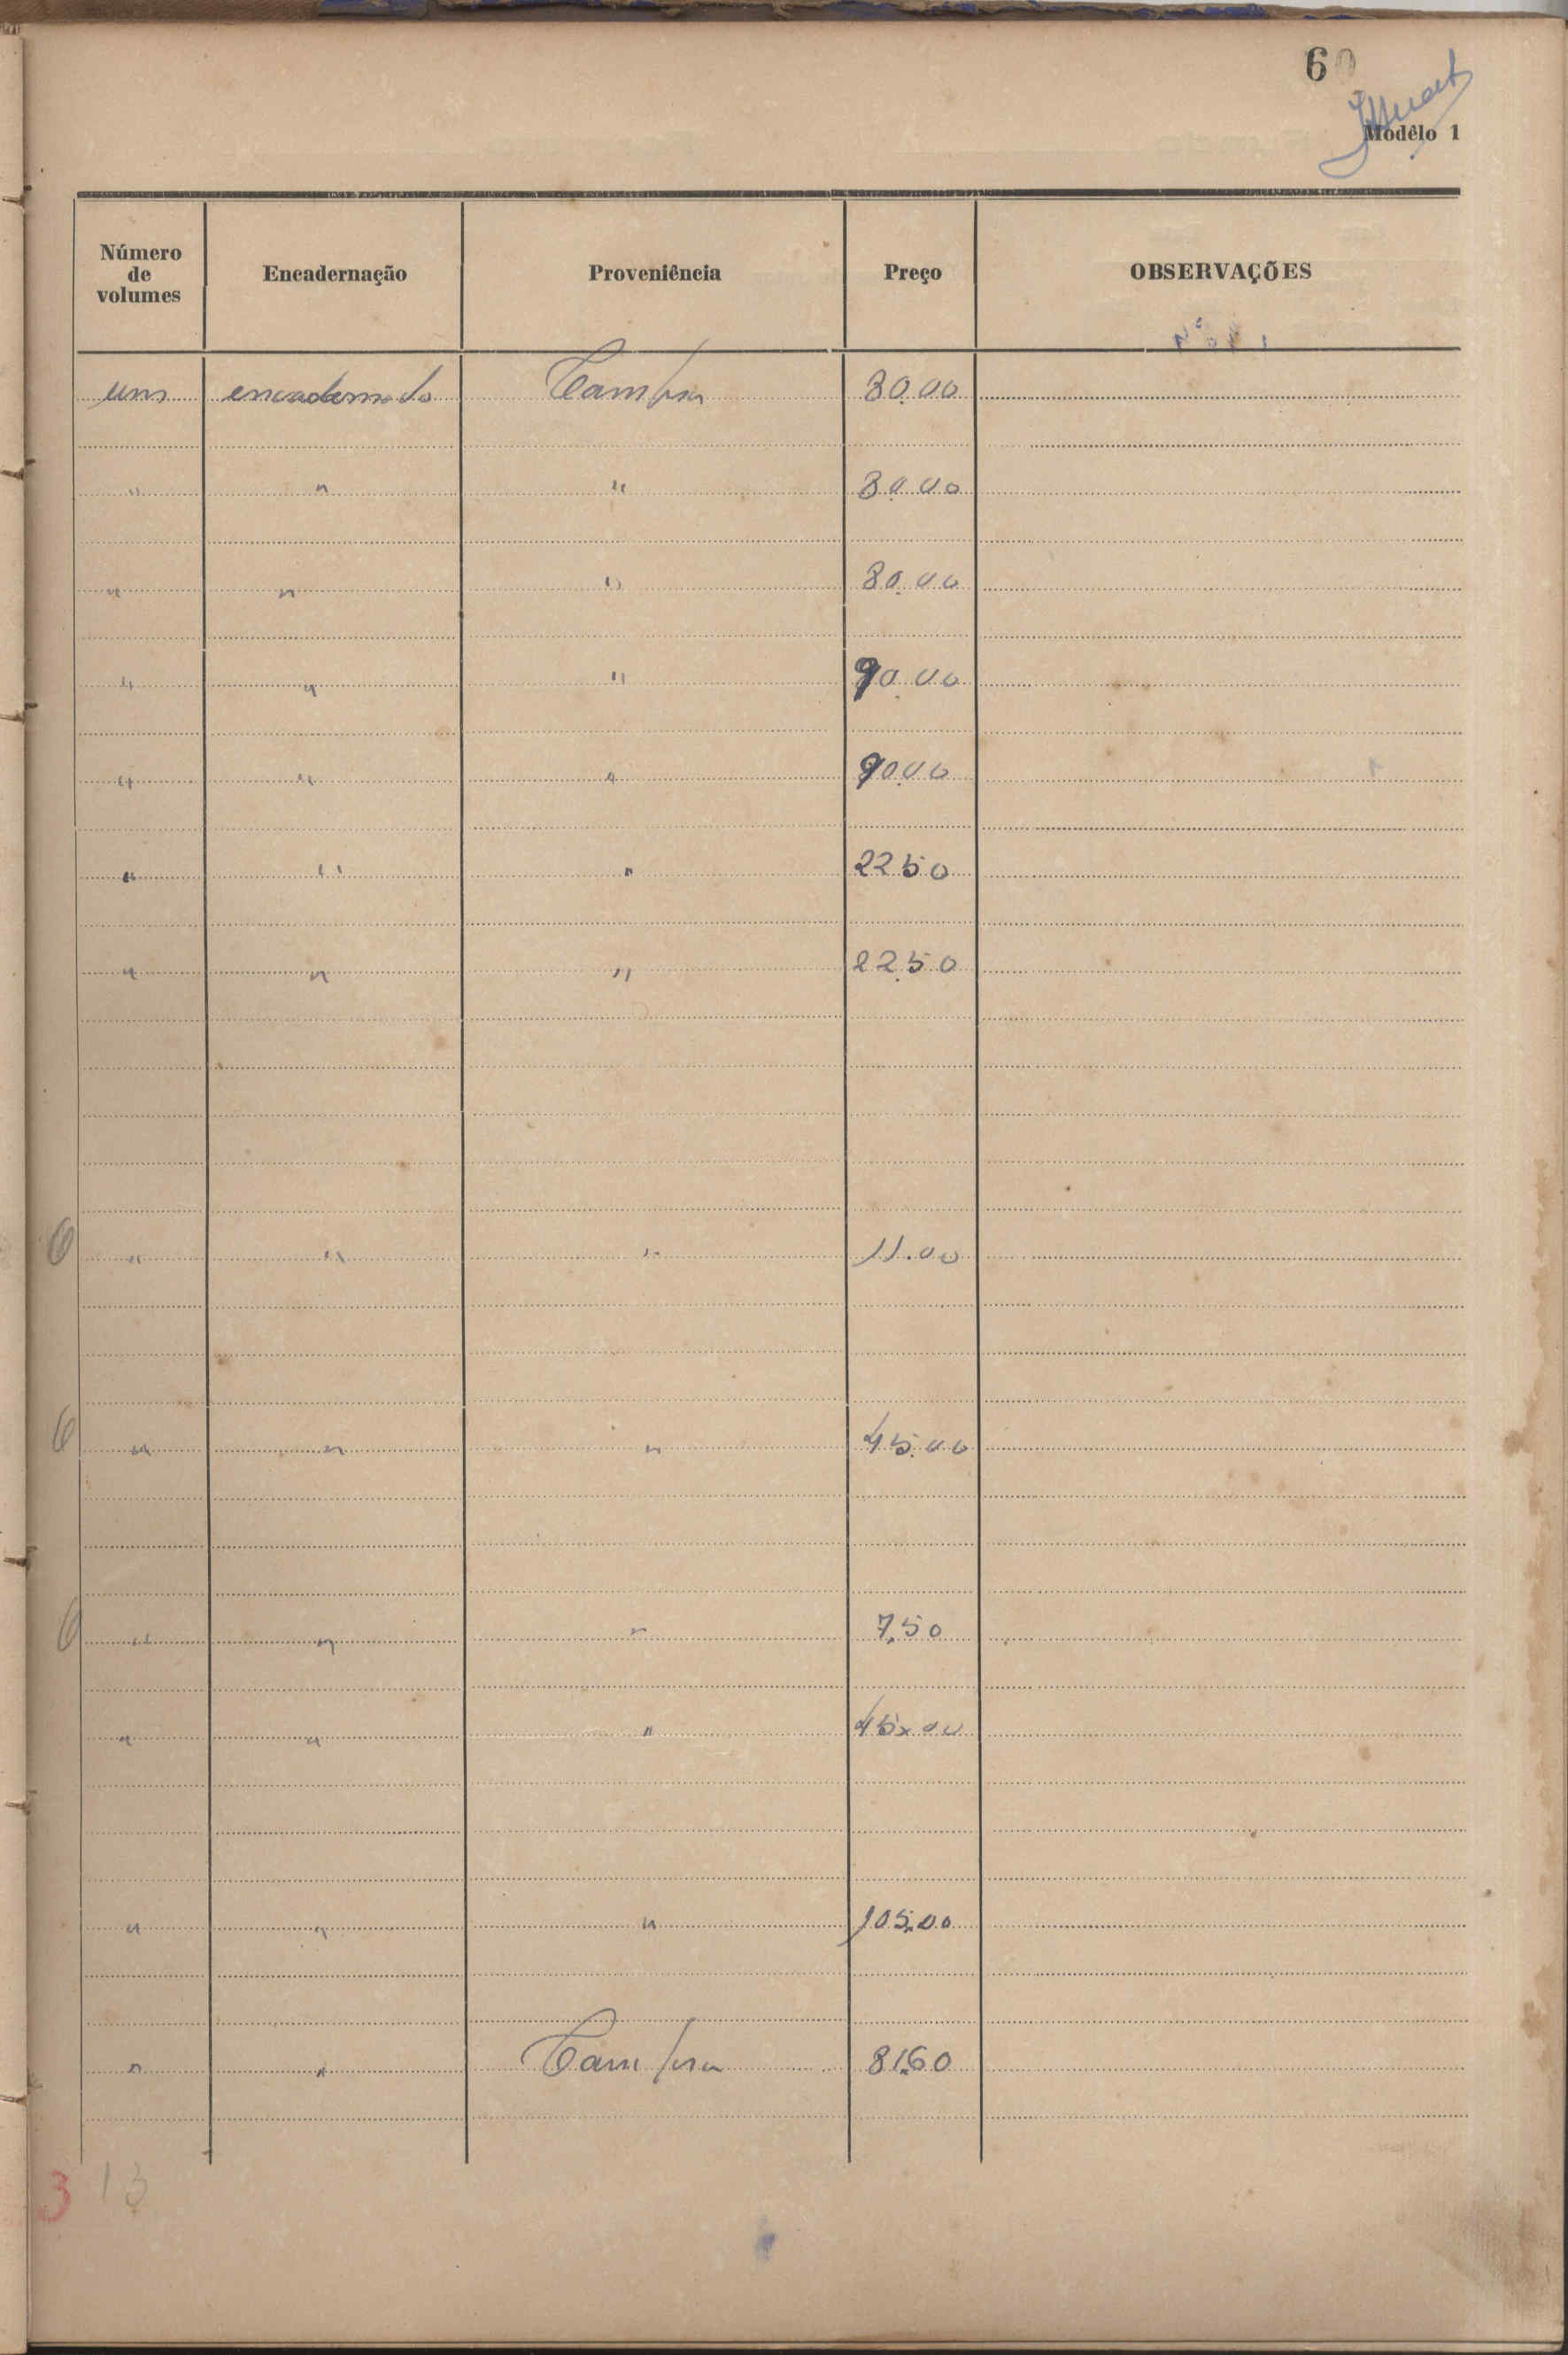 60
Modêlo 1
Número de volumes Encadernação Proveniência Preço OBSERVAÇÕES
um encadernado Compra 80.00
" " " 80.00
" " " 80.00
" " " 90.00
" " " 90.00
" " " 22.50
" " " 22.50
6 " " " 11.00
6 " " " 45.00
6 " " " 7,50
" " " 45x00
" " " 105,00
" " Compra 81,60
3 13